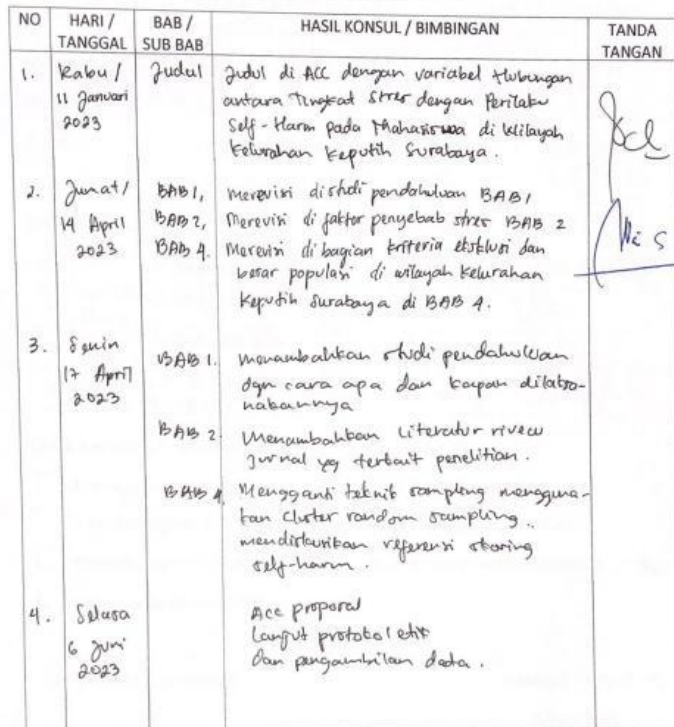 NO HARI / TANGGAL BAB / SUB BAB HASIL KONSUL / BIMBINGAN TANDA TANGAN
1. Rabu / Judul Judul di ACC dengan variabel Hubungan
11 Januari antara Tingkat Stres dengan Perilaku
2023 Self-Harm pada Mahasiswa di Wilayah
Kelurahan Keputih Surabaya.
2. Jumat / BAB 1, Merevisi di studi pendahuluan BAB 1
14 April BAB 2, Merevisi di faktor penyebab stres BAB 2
2023 BAB 4. Merevisi di bagian kriteria eksklusi dan
besar populasi di wilayah Kelurahan
Keputih Surabaya di BAB 4.
3. Senin BAB 1. Menambahkan studi pendahuluan
17 April dgn cara apa dan kapan dilakso-
2023 nakannya
BAB 2. Menambahkan Literatur rivew
Jurnal yg terkait penelitian.
BAB 4. Mengganti teknik sampling mengguna-
kan cluster random sampling.
mendiskusikan referensi skoring
self-harm.
4. Selasa Acc proposal
6 Juni Lanjut protokol etik
2023 dan pengambilan data.